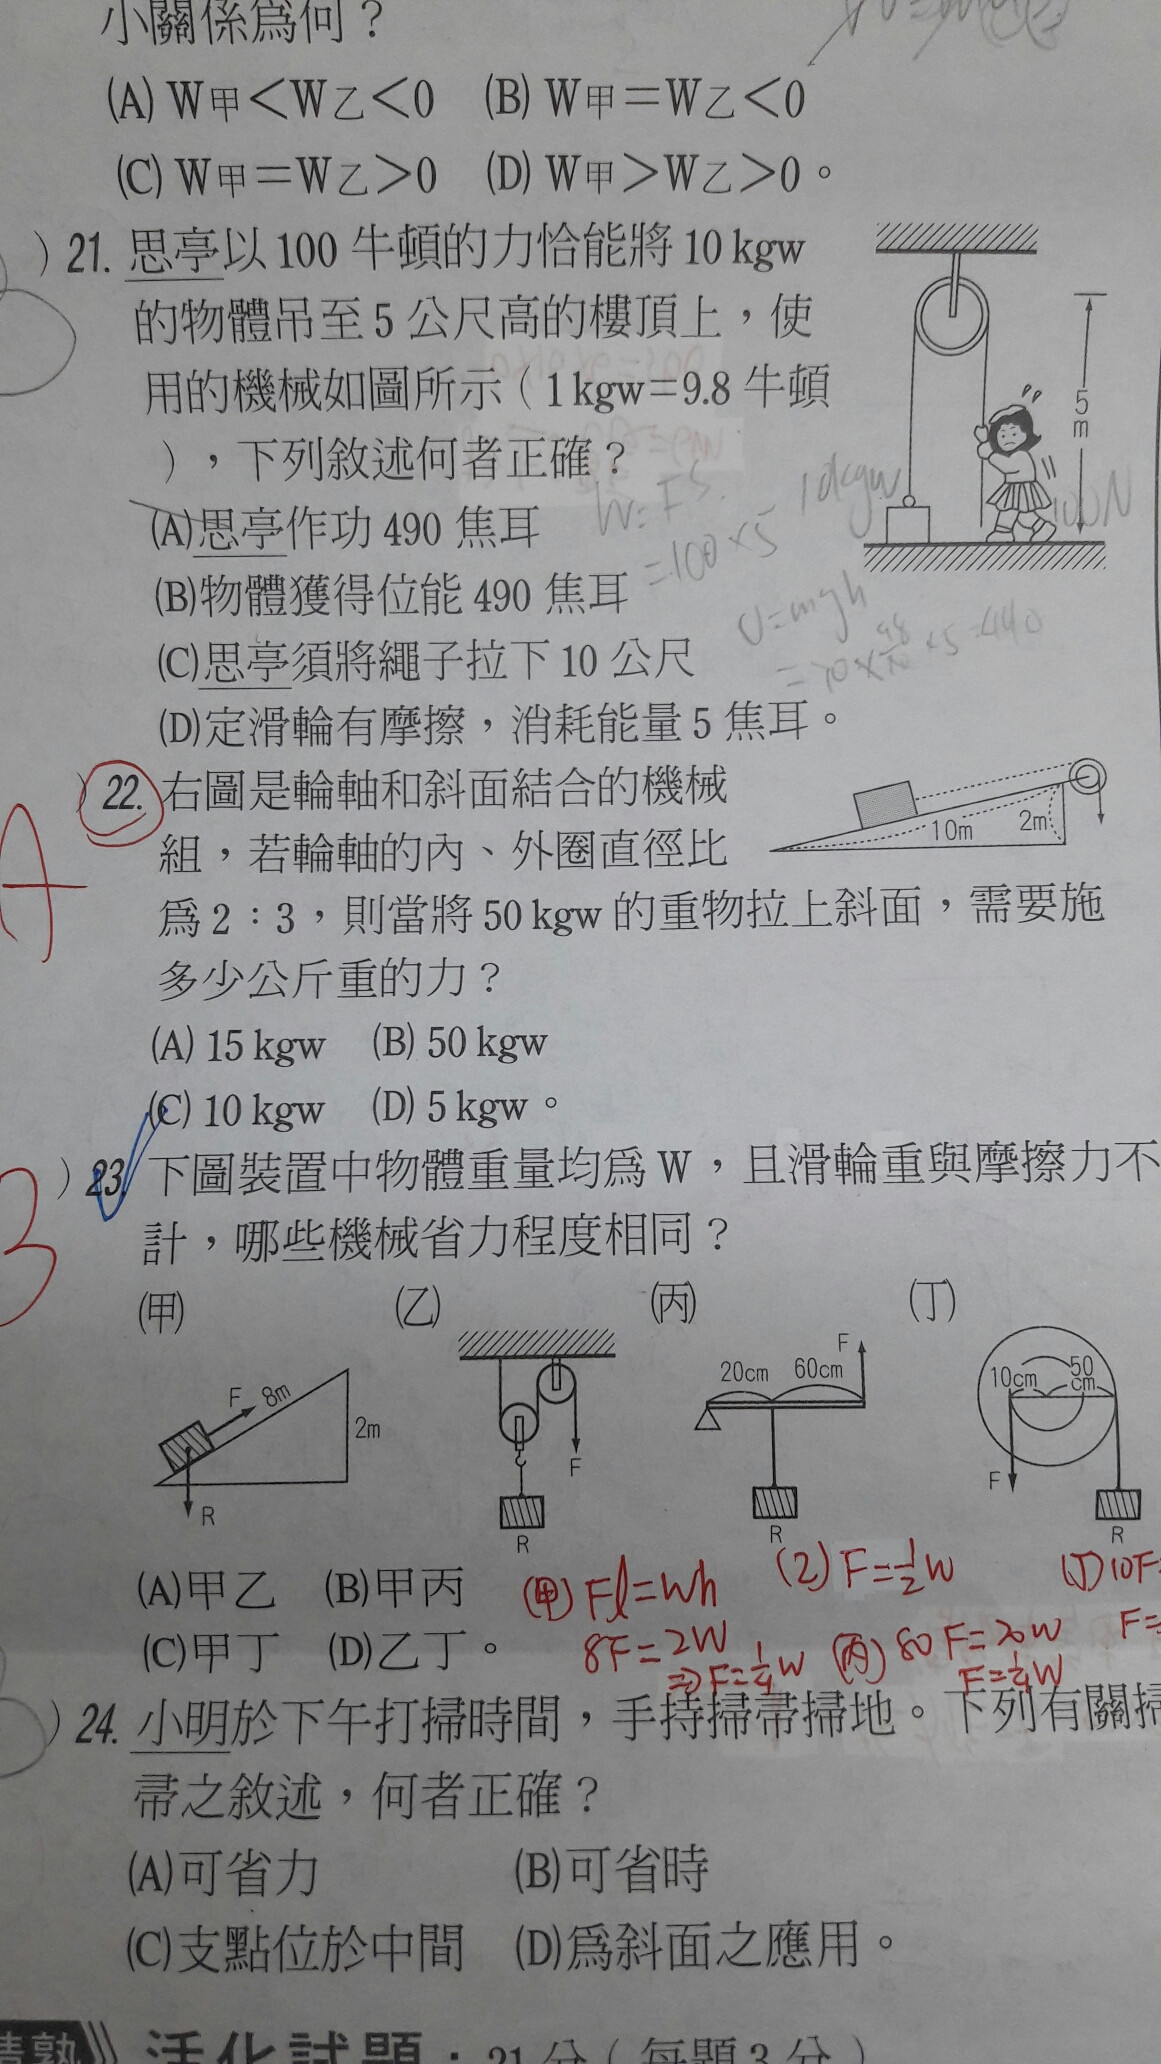 小關係爲何？
(A) W甲＜W乙＜0　(B) W甲＝W乙＜0
(C) W甲＝W乙＞0　(D) W甲＞W乙＞0。
）21. 思亭以 100 牛頓的力恰能將 10 kgw
的物體吊至 5 公尺高的樓頂上，使
用的機械如圖所示（1 kgw＝9.8 牛頓
），下列敘述何者正確？
(A)思亭作功 490 焦耳
(B)物體獲得位能 490 焦耳
(C)思亭須將繩子拉下 10 公尺
(D)定滑輪有摩擦，消耗能量 5 焦耳。
5
m
10kgw
100N
W=FS
=100×5
U=mgh
A
）22. 右圖是輪軸和斜面結合的機械
組，若輪軸的內、外圈直徑比
爲 2：3，則當將 50 kgw 的重物拉上斜面，需要施
多少公斤重的力？
(A) 15 kgw　(B) 50 kgw
(C) 10 kgw　(D) 5 kgw。
10m
2m
B
）23. 下圖裝置中物體重量均爲 W，且滑輪重與摩擦力不
計，哪些機械省力程度相同？
(甲)　(乙)　(丙)　(丁)
F 8m 2m R
F R
20cm 60cm F R
10cm 50cm F R
(A)甲乙　(B)甲丙
(C)甲丁　(D)乙丁。
(甲) Fl=Wh
8F=2W
⇒F=1/4W
(2) F=1/2W
(丙) 80F=20W
F=1/4W
(丁) 10F=
F=
）24. 小明於下午打掃時間，手持掃帚掃地。下列有關掃
帚之敘述，何者正確？
(A)可省力　(B)可省時
(C)支點位於中間　(D)爲斜面之應用。
精熟》活化試題：21 分（每題 3 分）